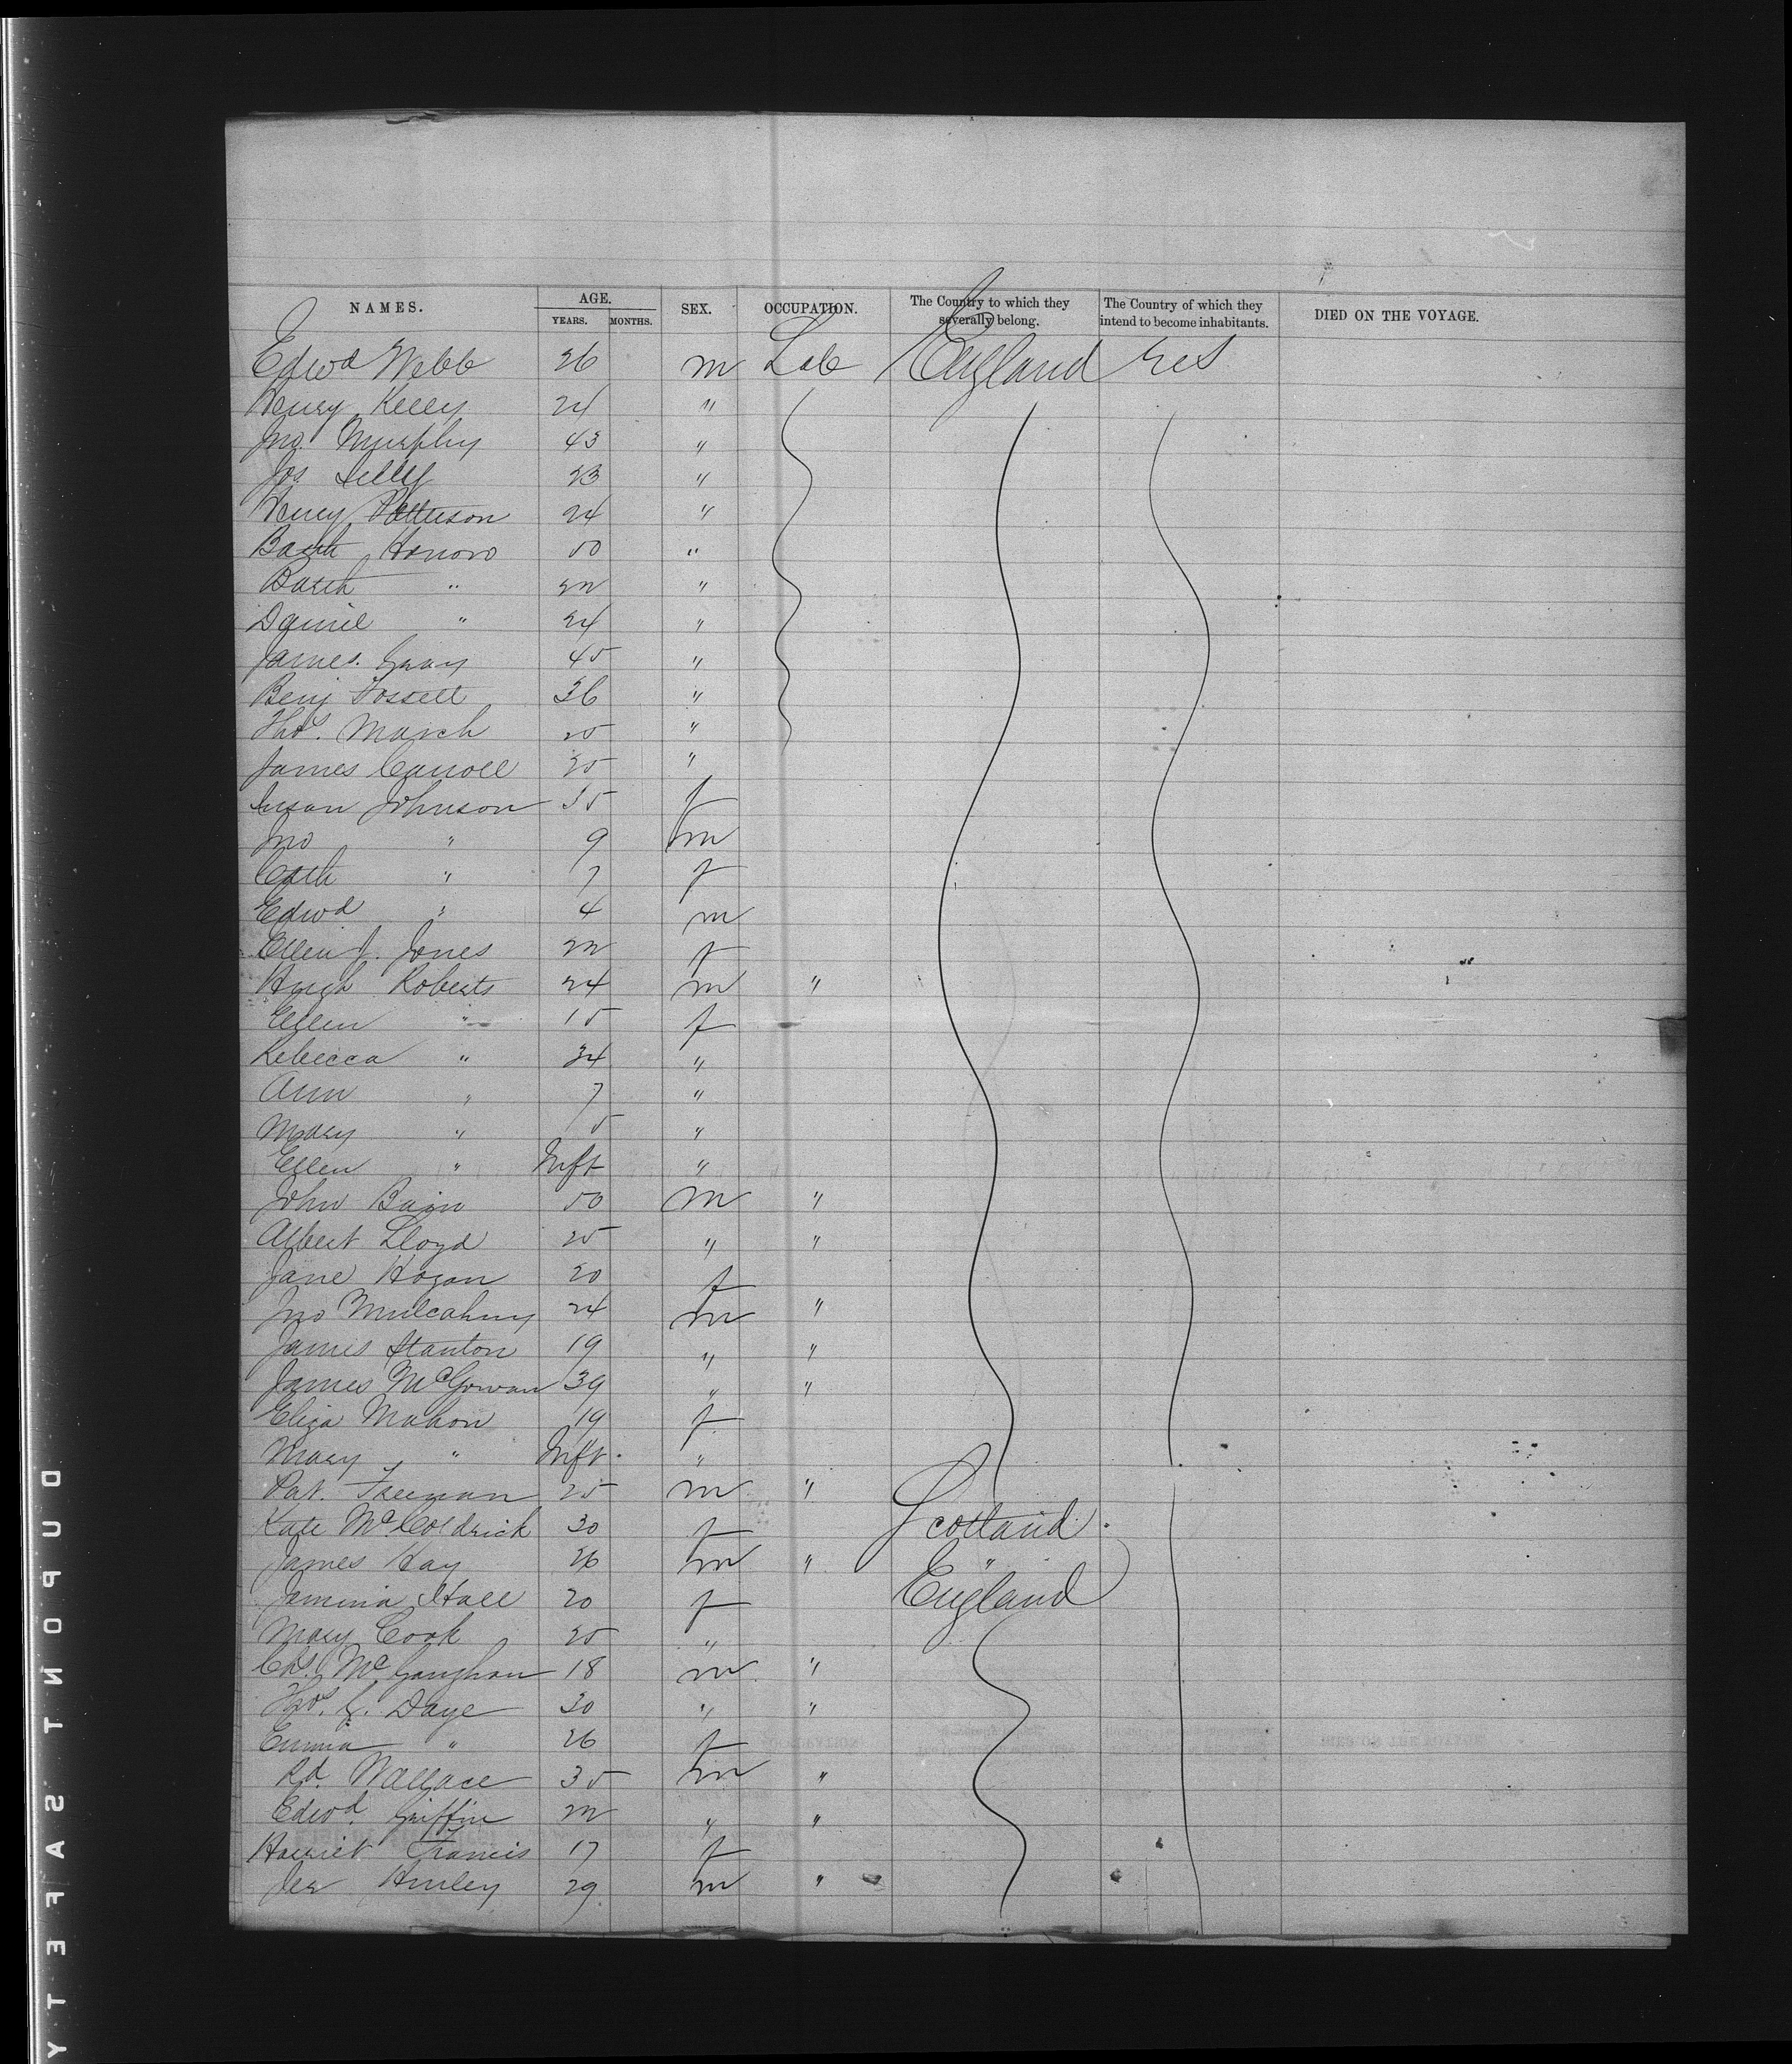 NAMES. AGE. SEX. OCCUPATION. The Country to which they severally belong. The Country of which they intend to become inhabitants. DIED ON THE VOYAGE.
YEARS. MONTHS.
Edwd Webb 26 m Lab England
Henry Kelly 24 "
Jno. Murphy 43 "
Jos 23 "
Henry Patterson 24 "
Barth 50 "
Barth " 22 "
Daniel " 24 "
James Gray 45 "
Benj Fossett 36 "
Thos. March 25 "
James Carroll 35 "
Susan Johnson 35 f
Jno " 9 m
Cath " 7 f
Edwd " 4 m
Ellen J. Jones 22 f
Hugh Roberts 24 m "
Ellen " 15 f
Rebecca " 34 "
Ann " 7 "
Mary " 5 "
Ellen " Inft "
John Bain 50 m "
Albert Lloyd 25 " "
Jane Hogan 20 f
Jno Mulcahy 24 m "
James Stanton 19 " "
James McGowan 39 " "
Eliza Mahon 19 f
Mary " Inft. "
Pat. Freeman 25 m "
Kate McColdrick 30 f Scotland.
James Hay 26 m " "
Jamina Hall 20 f England
Mary Cook 25 "
Chs. McGaughan 18 m "
Thos. G. Daye 30 " "
Emma " 26 f
Rd. Wallace 35 m "
Edwd. Griffin 22 " "
Harriet Francis 17 f
Jer Hurley 29 m "
DUPONT SAFETY